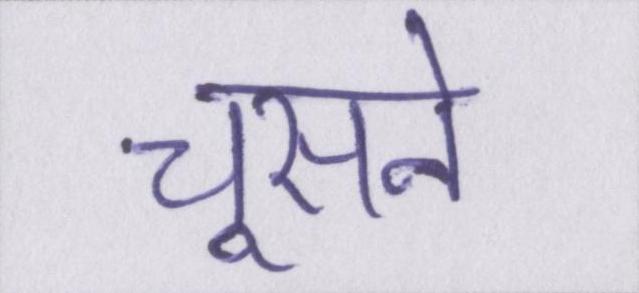 चूसने